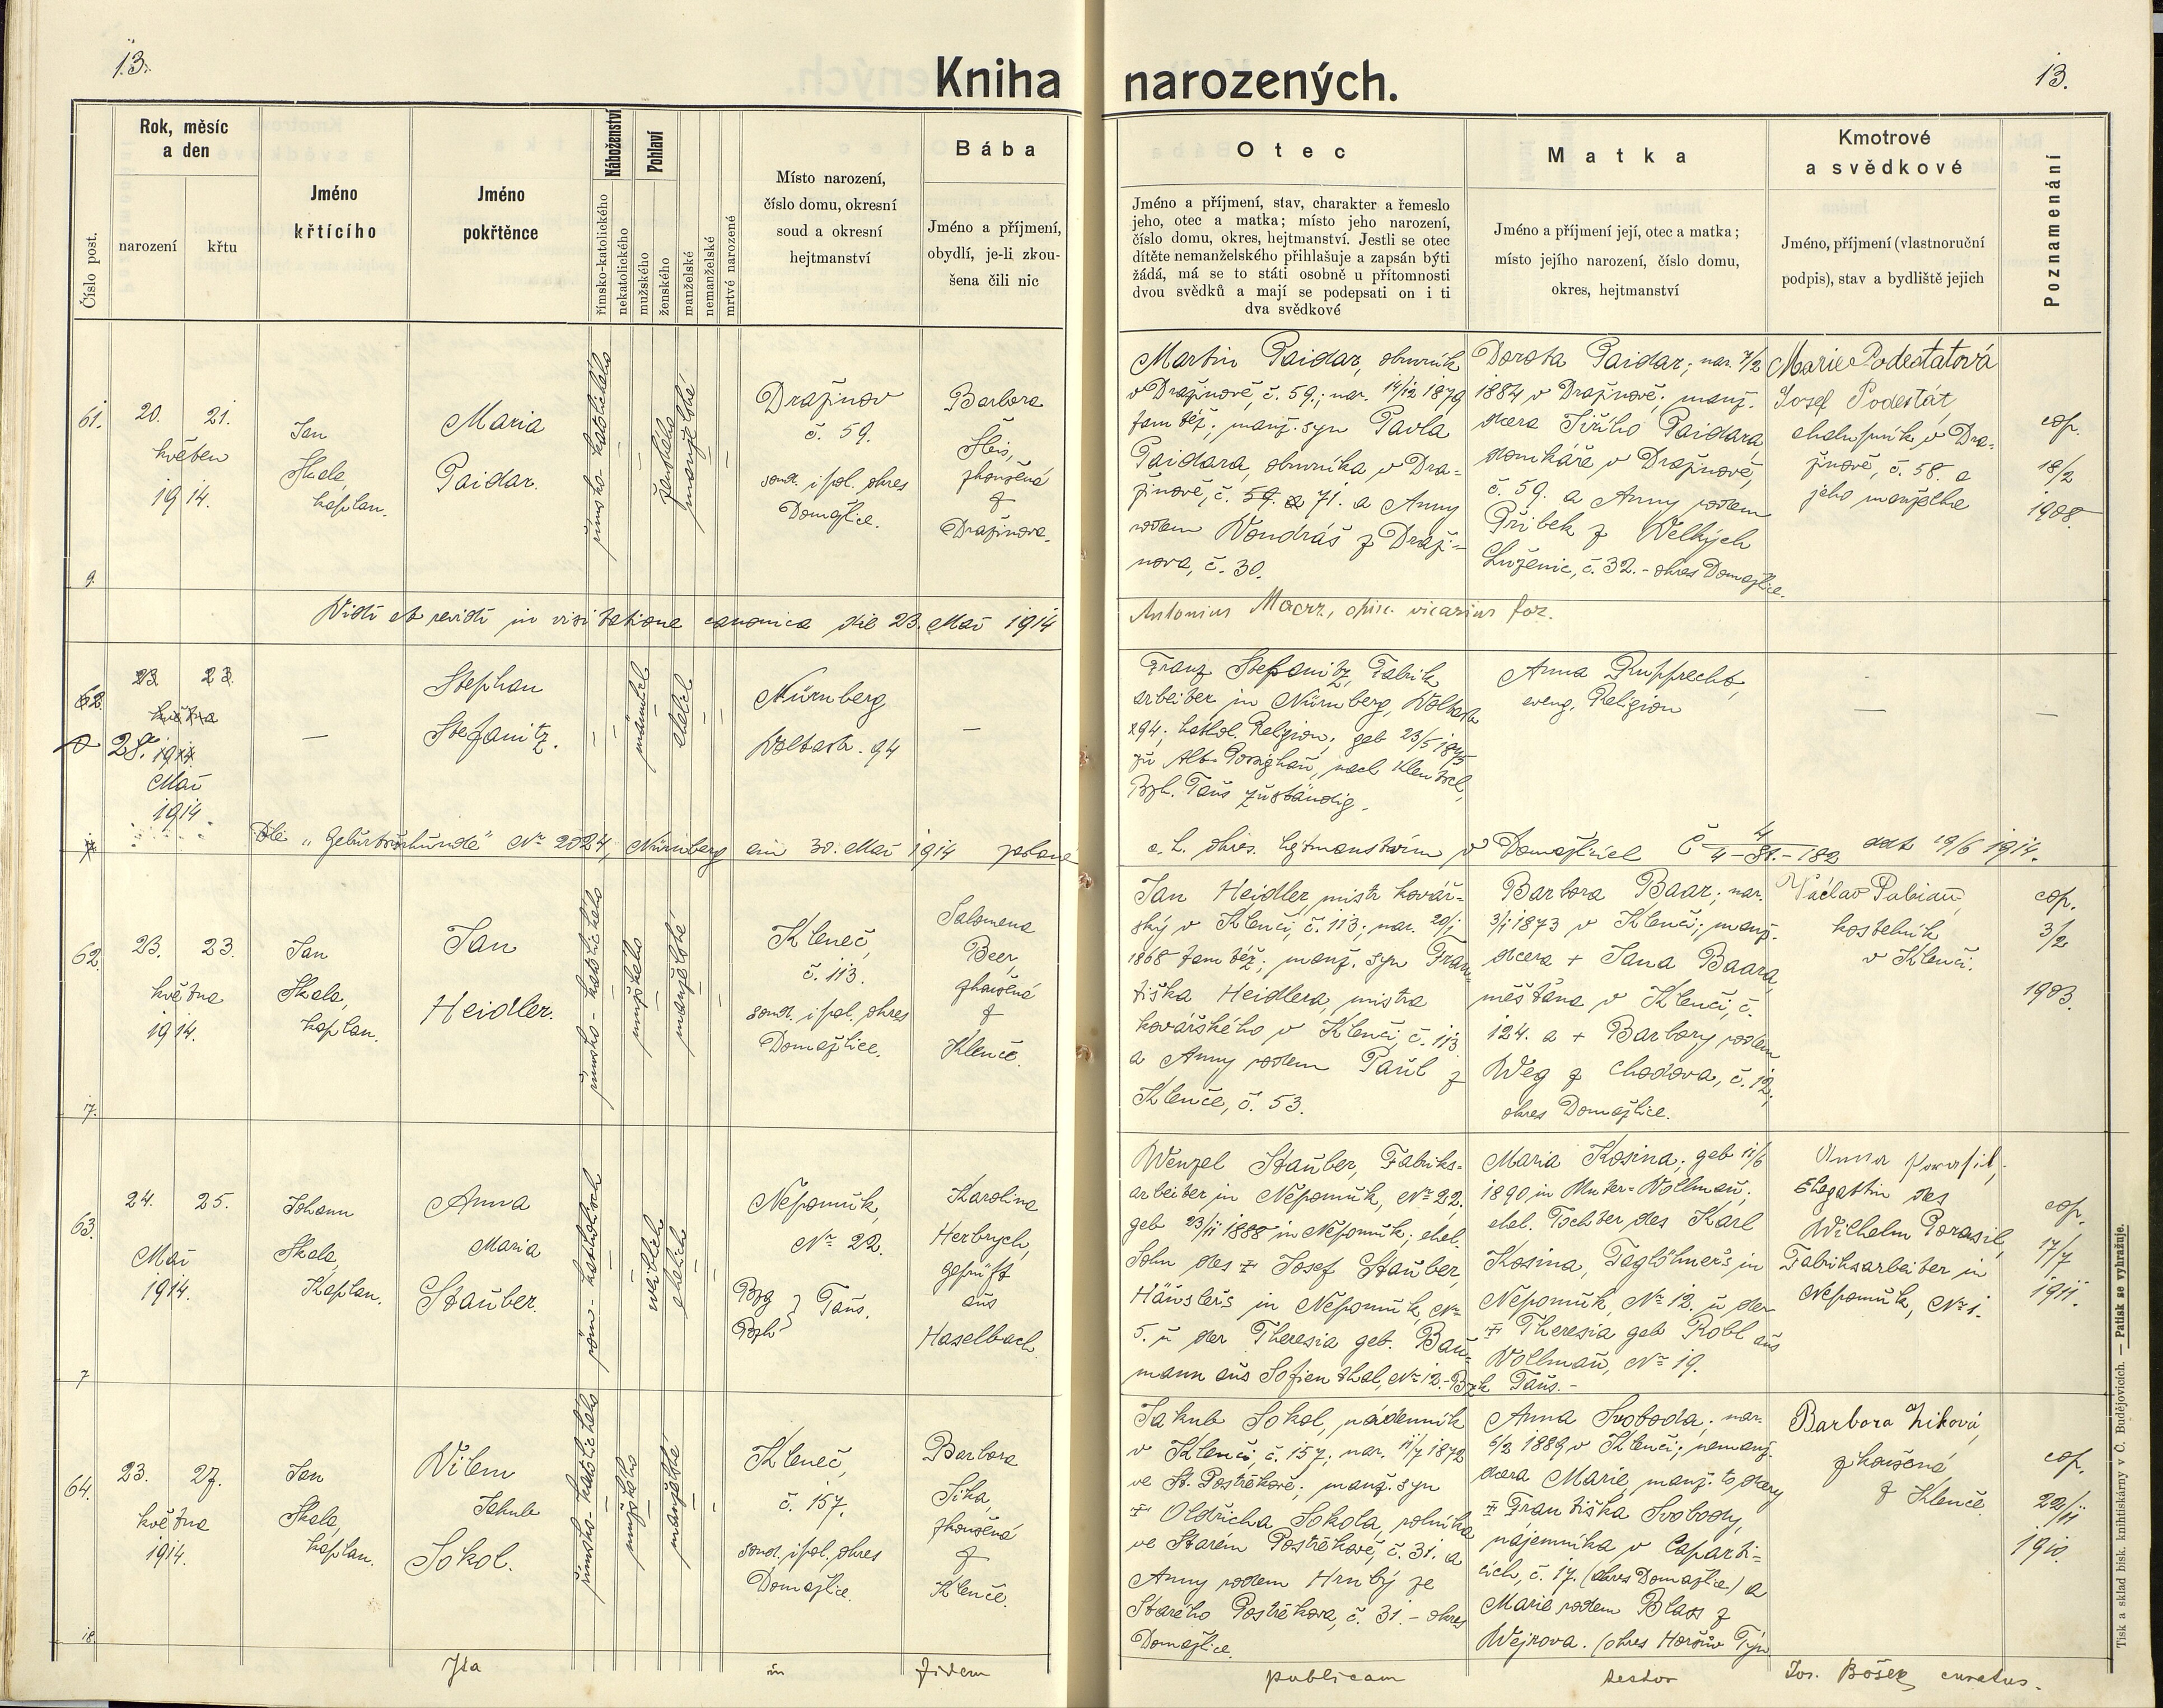 13.
Kniha narozených.
13.
Číslo post.
Rok, měsíc
a den
narození
křtu
Jméno
křtícího
Jméno
pokřtěnce
Náboženství
římsko-katolického
nekatolického
Pohlaví
mužského
ženského
manželské
nemanželské
mrtvé narozené
Místo narození,
číslo domu, okresní
soud a okresní
hejtmanství
Bába
Jméno a příjmení,
obydlí, je-li zkou-
šena čili nic
Otec
Jméno a příjmení, stav, charakter a řemeslo
jeho, otec a matka; místo jeho narození,
číslo domu, okres, hejtmanství. Jestli se otec
dítěte nemanželského přihlašuje a zapsán býti
žádá, má se to státi osobně u přítomnosti
dvou svědků a mají se podepsati on i ti
dva svědkové
Matka
Jméno a příjmení její, otec a matka;
místo jejího narození, číslo domu,
okres, hejtmanství
Kmotrové
a svědkové
Jméno, příjmení (vlastnoruční
podpis), stav a bydliště jejich
Poznamenání
61.
20. 21.
květen
1914.
Jan
Skala,
kaplan.
Maria
Paidar.
římsko-katolického
ženského
manželské
Dražinov
č. 59.
soud. i pol. okres
Domažlice.
Barbora
Šleis,
zkoušená
z
Dražinova.
Martin Paidar, obuvník
v Dražinově, č. 59.; nar. 14/12 1879
tamtéž; manž. syn Pavla
Paidara, obuvníka v Dra-
žinově, č. 59. a 71. a Anny
rodem Wondráš z Draži-
nova, č. 30.
Dorota Paidar; nar. 7/2
1884 v Dražinově; manž.
dcera Jiřího Paidara,
domkáře v Dražinově,
č. 59. a Anny rodem
Přibek z Welkých
Luženic, č. 32. - okres Domažlice.
Marie Podestatová
Josef Podestát,
chalupník v Dra-
žinově, č. 58. a
jeho manželka
cop.
18/2
1908.
9.
Vidi et revidi in visitatione canonica die 23. Mai 1914
Antonius Macrz, episc. vicarius for.
62.
23. 23.
května
28. 1914
Mai
1914
—
Stephan
Stefanitz.
männlich
ehelich
Nürnberg
Woltastr. 94
—
Franz Stefanitz, Fabrik
arbeiter in Nürnberg, Woltastr
294; kathol. Religion; geb 23/5 1875
zu Alt-Posighau, nach Klentsch,
Bzh. Taus zuständig.
Anna Rupprecht,
evang. Religion
—
—
Dle „Geburtsurkunde" Nr 2024, Nürnberg am 30. Mai 1914 zaslané
c. k. okres. hejtmanstvím v Domažlicích Č 4/4-St.-182 ddt 19/6 1914.
62.
23. 23.
května
1914.
Jan
Skala,
kaplan.
Jan
Heidler.
římsko-katolického
mužského
manželské
Kleneč,
č. 113.
soud. i pol. okres
Domažlice.
Salomena
Beer,
zkoušená
z
Klenče.
Jan Heidler, mistr kovář-
ský v Klenči, č. 113; nar. 20/1
1868 tamtéž; manž. syn Fran-
tiška Heidlera, mistra
kovářského v Klenči, č. 113
a Anny rodem Paul z
Klenče, č. 53.
Barbora Baar; nar.
3/1 1873 v Klenči; manž.
dcera + Jana Baara,
měšťana v Klenči, č.
124. a + Barbory rodem
Weg z Chodova, č. 12,
okres Domažlice.
Václav Pabian,
kostelník
v Klenči.
cop.
3/2
1903.
17.
63.
24. 25.
Mai
1914.
Johann
Skala,
Kaplan.
Anna
Maria
Stauber.
röm-katholisch
weiblich
ehelich
Nepomuk,
Nr 22.
Bzg
Bzh } Taus.
Karolina
Herbrych,
geprüft
aus
Haselbach.
Wenzel Stauber, Fabriks-
arbeiter in Nepomuk, Nr 22.
geb 23/11 1888 in Nepomuk; ehel.
Sohn des + Josef Stauber,
Häuslers in Nepomuk, Nr
5. u der Theresia geb. Bau-
mann aus Sofienthal, Nr 12.- Bzh Taus.-
Maria Kosina; geb 11/6
1890 in Unter-Vollmau;
ehel. Tochter des Karl
Kosina, Taglöhners in
Nepomuk, Nr 12. u der
+ Theresia geb Robl aus
Vollmau, Nr 19.
Anna Porasil,
Ehegattin des
Wilhelm Porasil,
Fabriksarbeiter in
Nepomuk, Nr 1.
cop.
17/7
1911.
7
64.
23. 27.
května
1914.
Jan
Skala,
kaplan.
Wilem
Jakub
Sokol.
římsko-katolického
mužského
manželské
Kleneč,
č. 157.
soud. i pol. okres
Domažlice.
Barbora
Žika,
zkoušená
z
Klenče.
Jakub Sokol, nádenník
v Klenči, č. 157; nar. 11/7 1872
ve St. Postřekově; manž. syn
+ Oldřicha Sokola, rolníka
ve Starém Postřekově, č. 31. a
Anny rodem Hrubý ze
Starého Postřekova, č. 31. - okres
Domažlice.
Anna Svoboda; nar.
6/2 1889 v Klenči; nemanž.
dcera Marie, manž. to dcery
+ Františka Svobody,
nájemníka v Caparti-
cích, č. 17. (okres Domažlice) a
Marie rodem Blass z
Wejrova. (okres Horšův Týn
Barbora Žiková,
zkoušená
z Klenče
cop.
22/11
1910.
18.
Ita in fidem publicam testor Jos. Böšek, curatus.
Tisk a sklad bisk. knihtiskárny v Č. Budějovicích. — Patisk se vyhražuje.